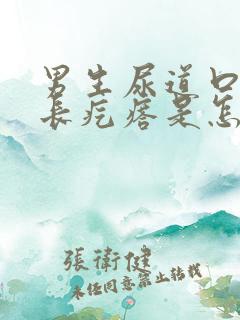 男生尿道口
长疙瘩是怎
張衛健
未经同意禁止转载